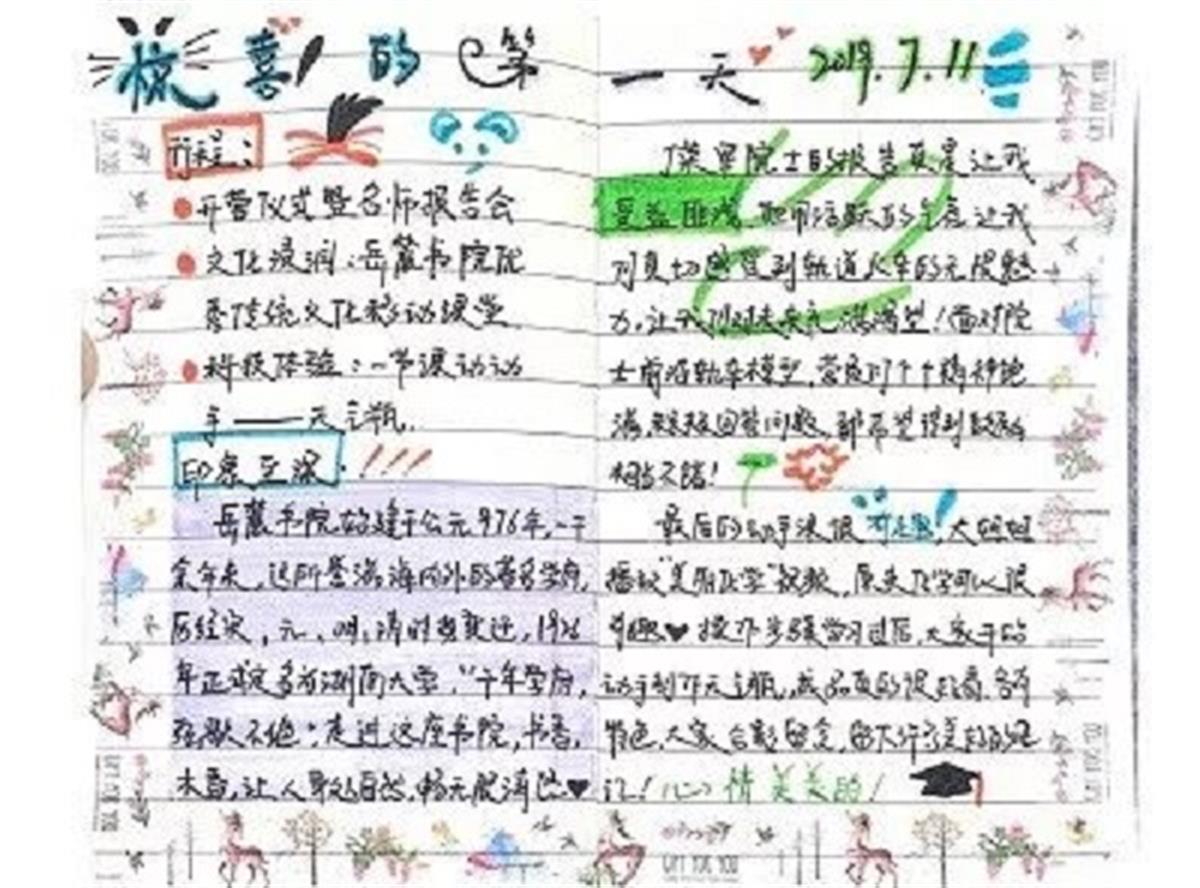 惊喜的第一天 2019.7.11
行程:
开营仪式暨名师报告会
文化浸润:岳麓书院优
秀传统文化移动课堂
科技体验:一节课动动
手——天气瓶.
印象至深:
岳麓书院始建于公元976年,一千
余年来,这所誉满海内外的著名学府,
历经宋,元,明,清时势变迁,1926
年正式定名为湖南大学,"千年学府,
弦歌不绝".走进这座书院,书香,
木香,让人身处自然,畅无股清 ♥
院士的报告真是让我
受益匪浅,现场活跃的气氛让我
们真切感觉到轨道火车的无限魅
力,让我们对未来充满渴望!面对院
士前沿轨车模型,营员们个个精神饱
满,积极回答问题,都希望得到
!
最后的动手课很有意思!大姐姐
播放"美丽化学"视频,原来化学可以很
有趣♥操作步骤学习过后,大家开始
动手制作天气瓶,成品真的很好看,各有
特色,大家合影留念,留下许多美好的见
证!心情美美的!